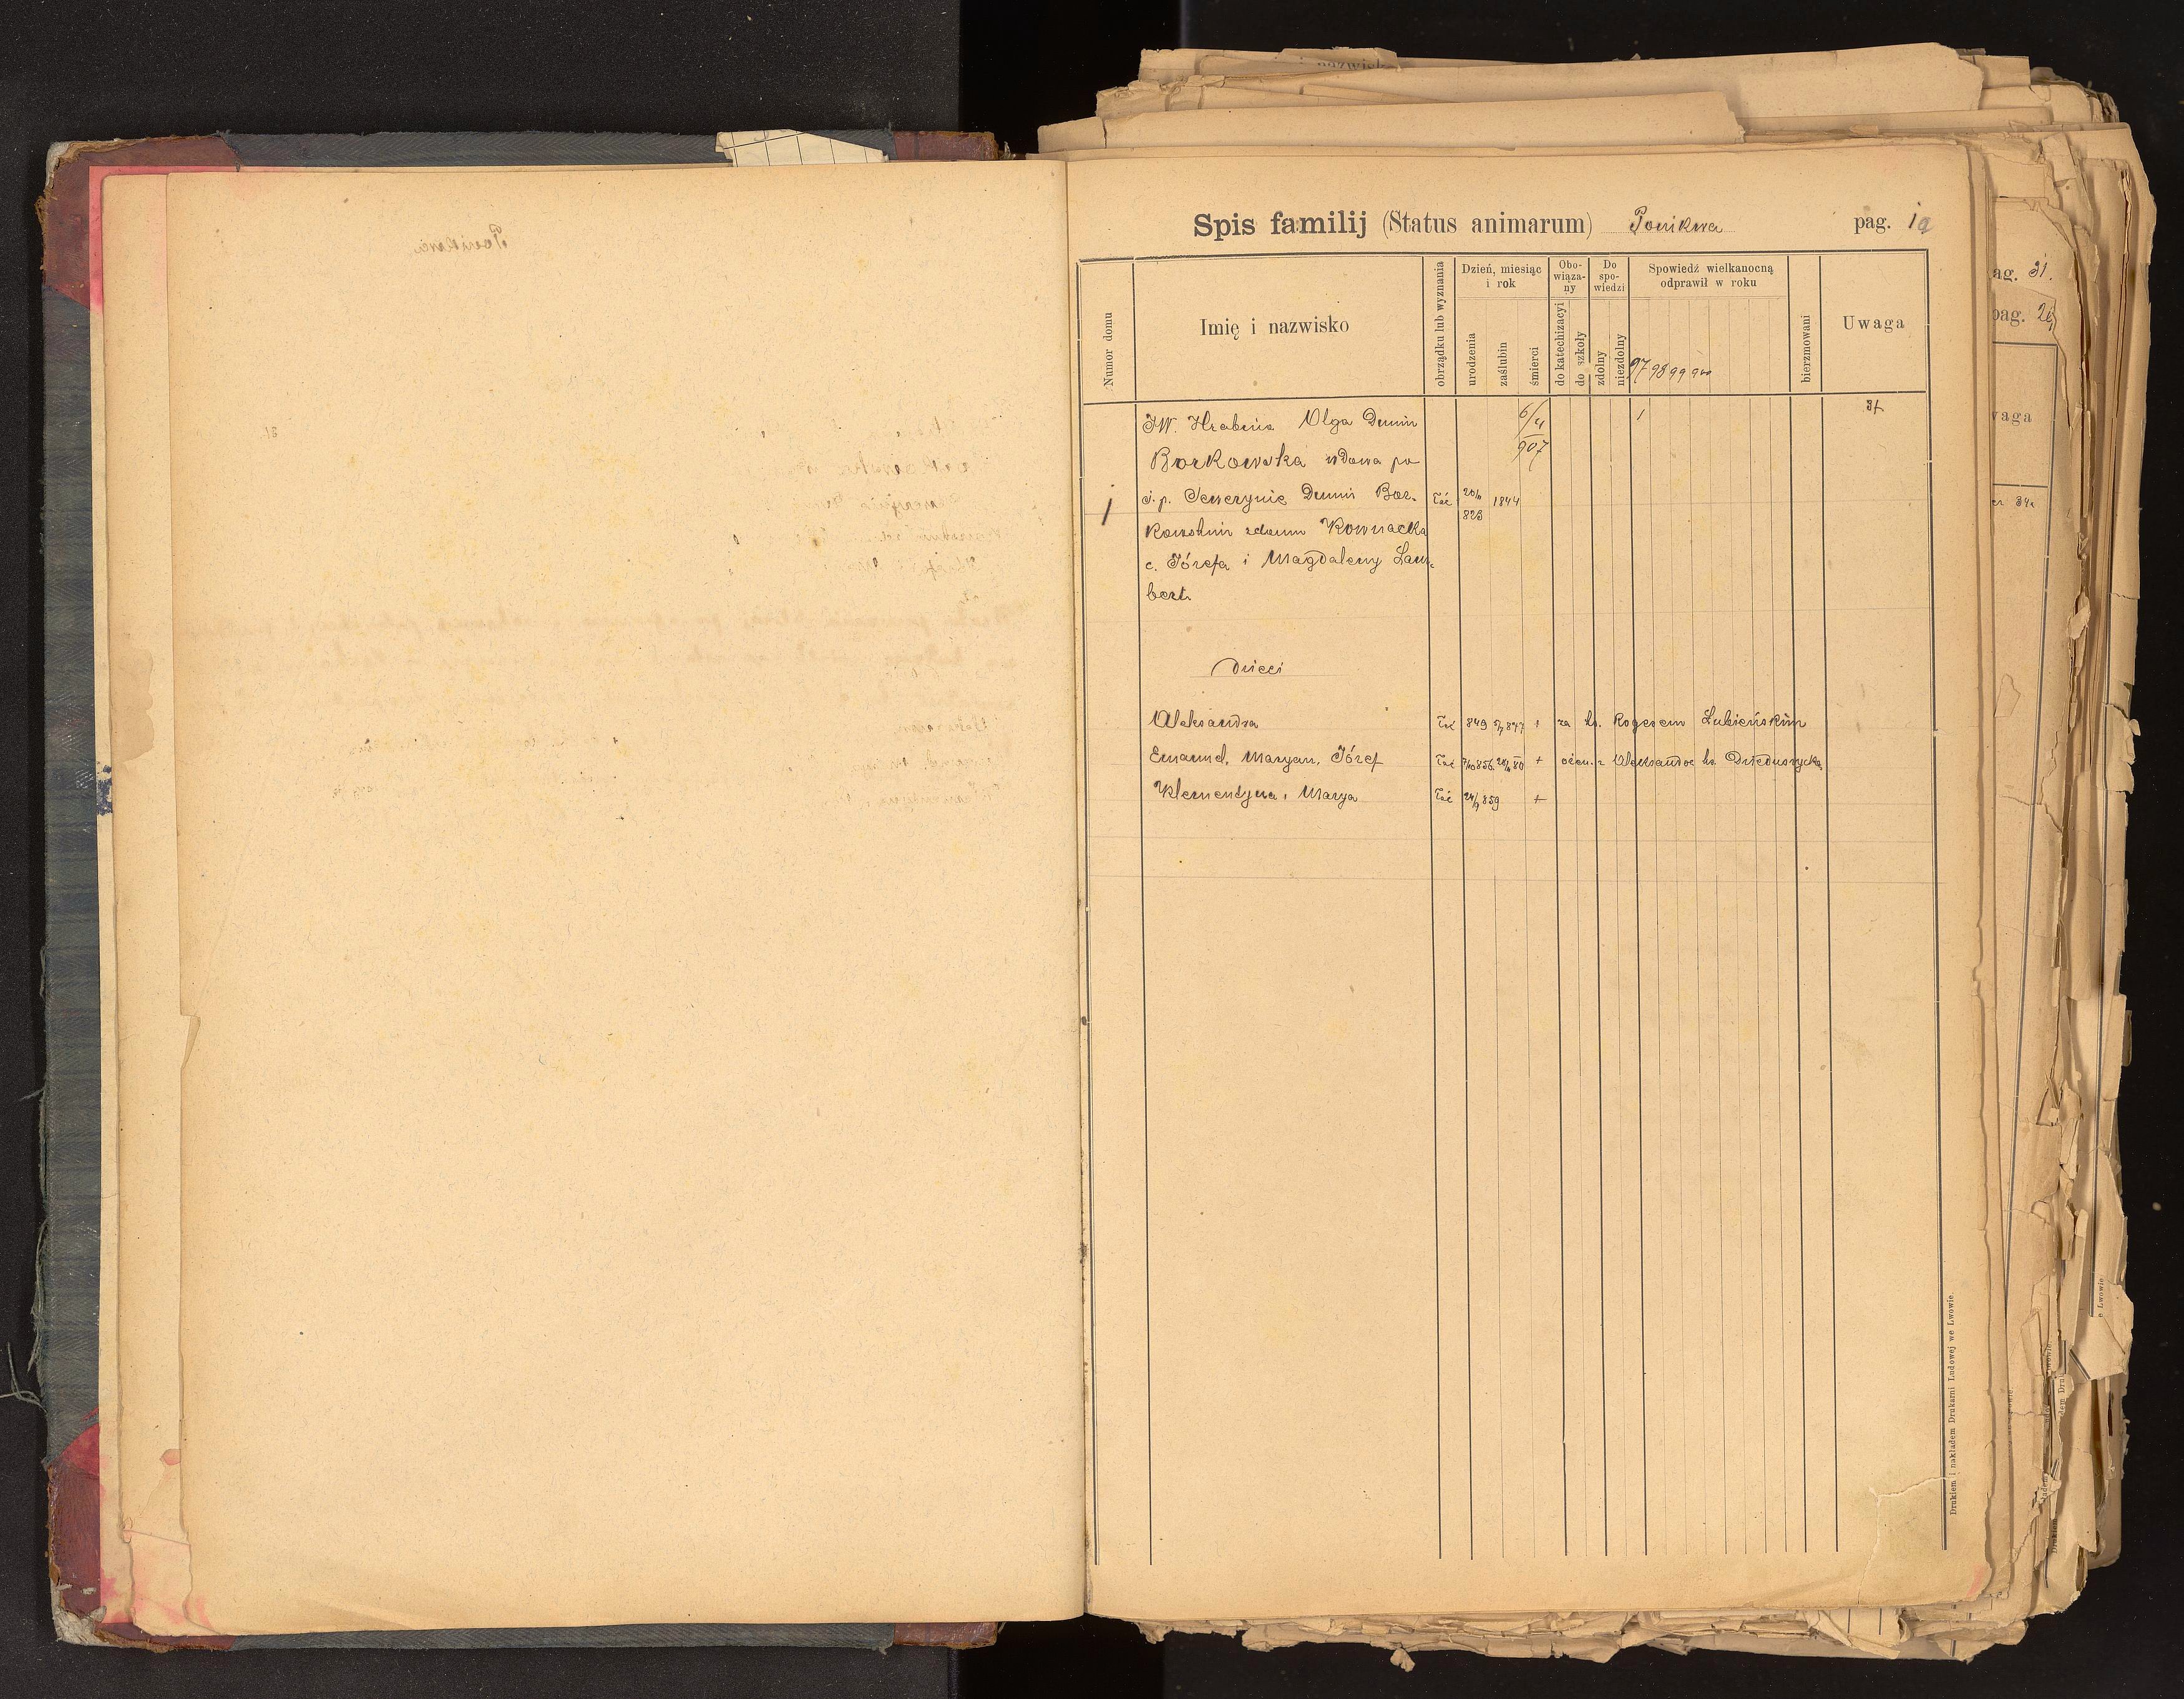 Spis familij (Status animarum) Ponikwa pag. 1a
Numer domu
Imię i nazwisko
obrządku lub wyznania
Dzień, miesiąc i rok
urodzenia
zaślubin
śmierci
Obo-wiąza-ny
do katechizacyi
do szkoły
Do spo-wiedzi
zdolny
niezdolny
Spowiedź wielkanocną odprawił w roku
97 98 99 900
bierzmowani
Uwaga
JW. Hrabina Olga Dunin 6/4 1
Borkowska wdowa po 907
1 ś. p. Sewerynie Dunin Bor- łać 1844
823
kowskim z domu Kownacka
c. Józefa i Magdaleny Lam-
bert.
Dzieci
Aleksandra łać 849 + za hr. Rogerem Łubieńskim
Emanuel, Maryan, Józef łać 856 80 + ożen. z Aleksandrą hr. Dzieduszycką
Klementyna, Marya łać 859 +
Drukiem i nakładem Drukarni Ludowej we Lwowie.
pag. 31.
pag.
waga
e Lwowie